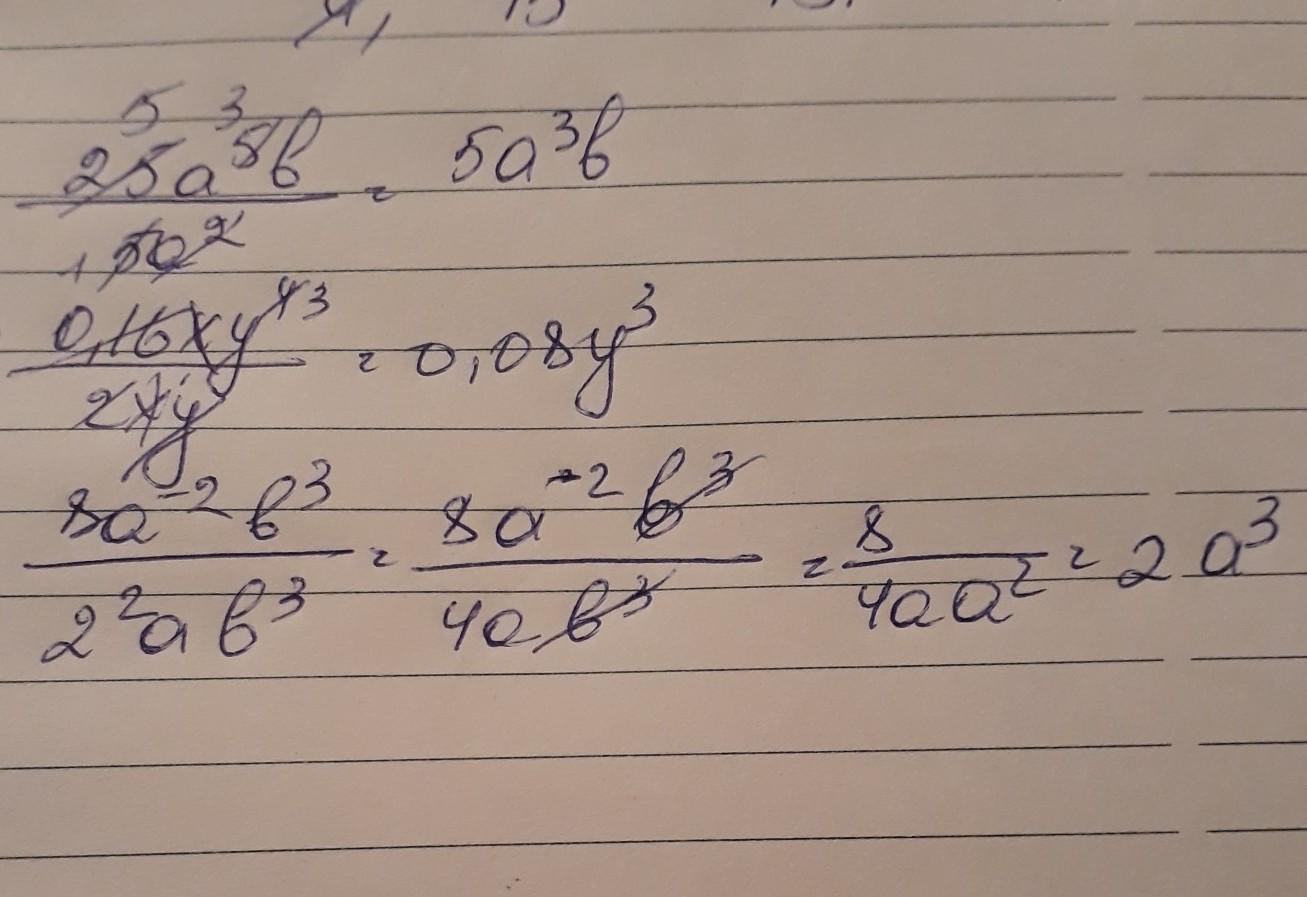 25a⁵b / 5a² = 5a³b
0,16xy⁴ / 2xy = 0,08y³
8a⁻²b³ / 2²ab³ = 8a⁻²b³ / 4ab³ = 8 / 4aa² = 2a³